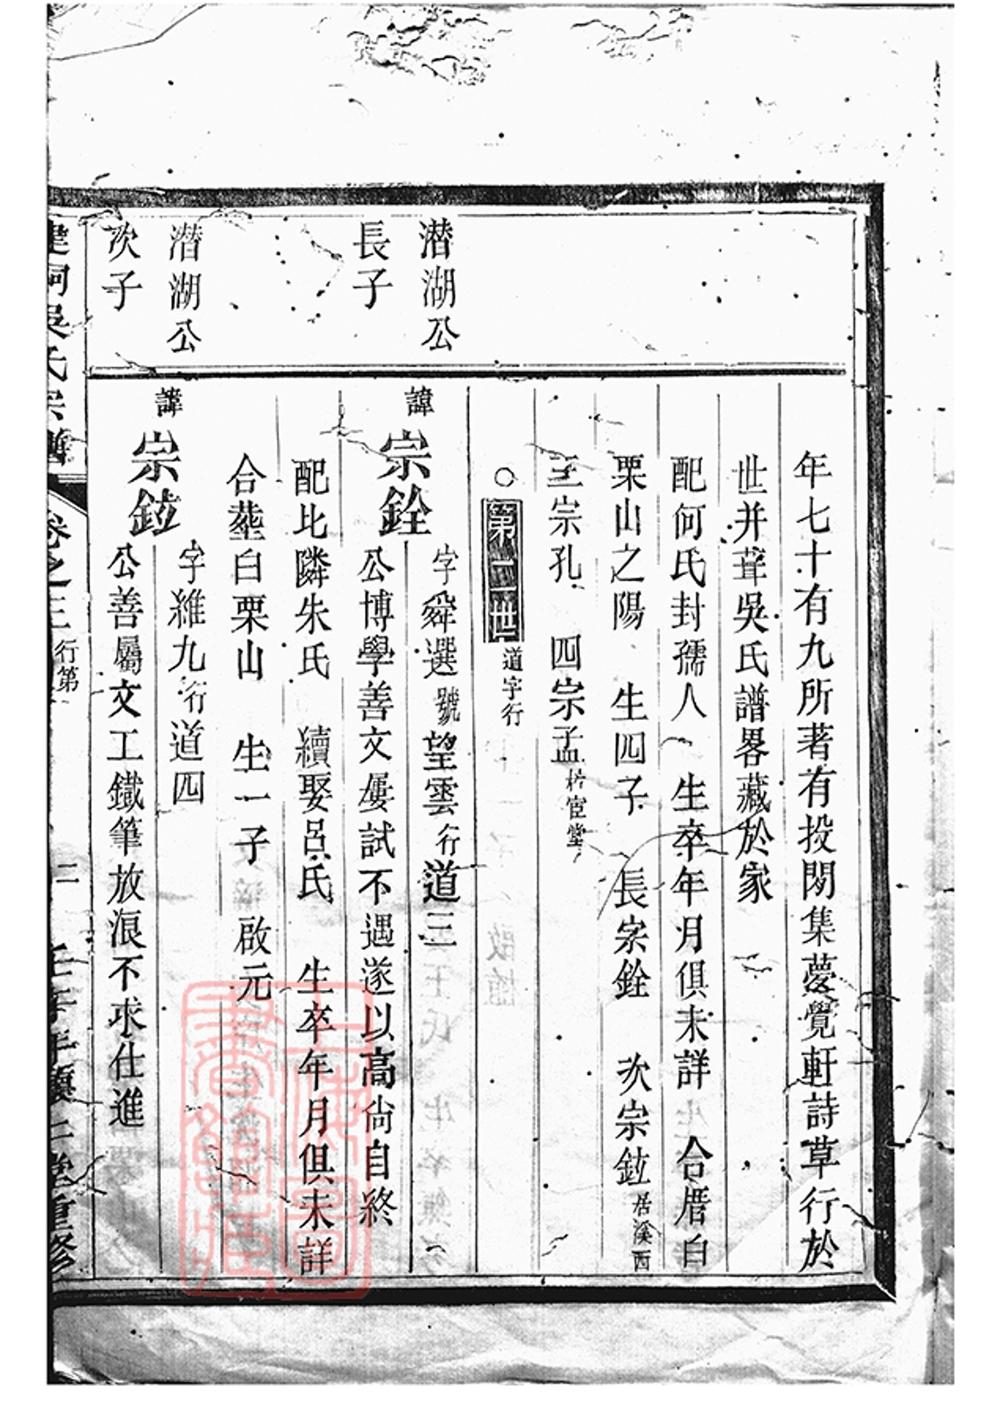 年七十有九所著有投閒集夢覺軒詩草行於
世并葺吳氏譜畧藏於家
配何氏封孺人 生卒年月俱未詳 合厝白
栗山之陽 生四子 長宗銓 次宗鉝居溪西
三宗孔 四宗孟析宦堂
○第二世道字行
潜湖公
長子
諱宗銓字舜選號望雲行道三
公博學善文屢試不遇遂以高尙自終
配比隣朱氏 續娶呂氏 生卒年月俱未詳
合塟白栗山 生一子 啟元
潜湖公
次子
諱宗鉝字維九行道四
公善屬文工鐵筆放浪不求仕進
吳氏宗譜 卷之三行第 二 壬午年 堂重修